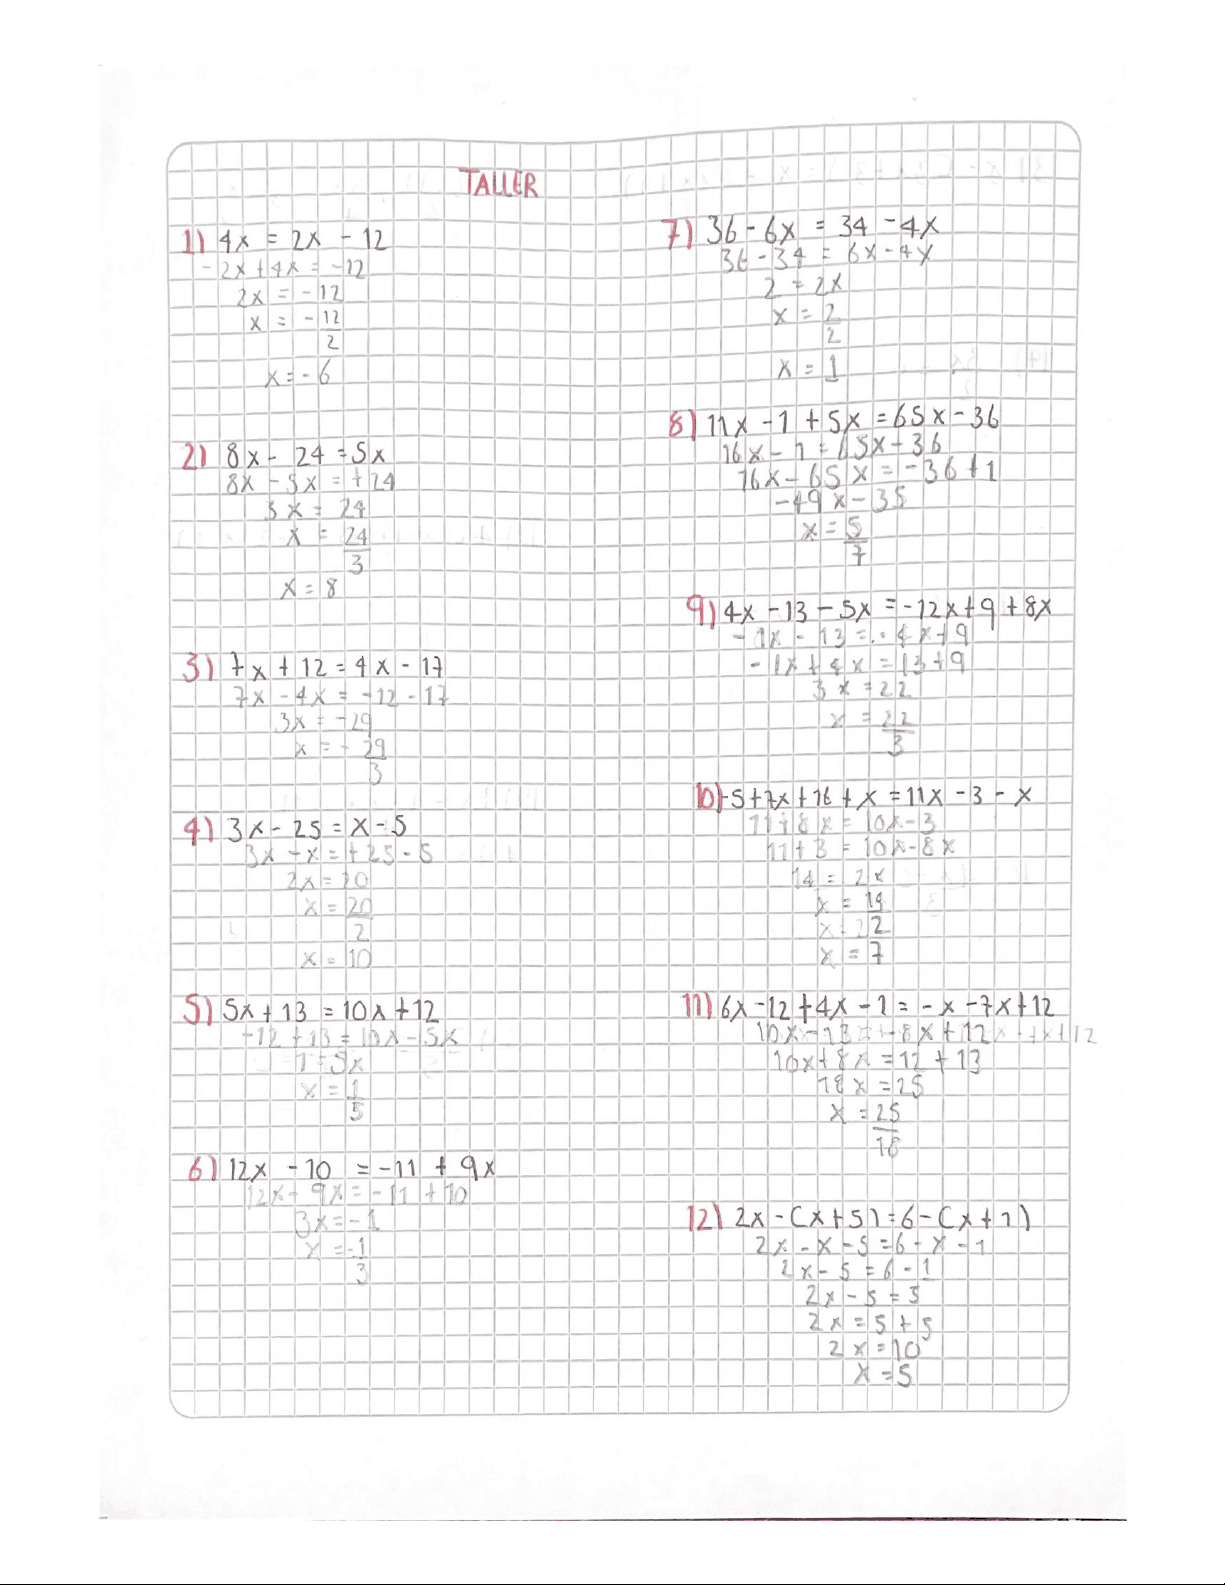 TALLER
1) 4x = 2x - 12
-2x + 4x = -12
2x = -12
x = -12
2
x = -6
2) 8x - 24 = 5x
8x - 5x = +24
3x = 24
x = 24
3
x = 8
3) 7x + 12 = 4x - 17
7x - 4x = -12 - 17
3x = -29
x = - 29
3
4) 3x - 25 = x - 5
3x - x = +25 - 5
2x = 20
x = 20
2
x = 10
5) 5x + 13 = 10x + 12
-12 + 13 = 10x - 5x
1 = 5x
x = 1
5
6) 12x - 10 = -11 + 9x
12x - 9x = -11 + 10
3x = -1
x = -1
3
7) 36 - 6x = 34 - 4x
36 - 34 = 6x - 4x
2 = 2x
x = 2
2
x = 1
8) 11x - 1 + 5x = 65x - 36
16x - 1 = 65x - 36
16x - 65x = -36 + 1
-49x - 35
x = 5
7
9) 4x - 13 - 5x = -12x + 9 + 8x
-1x - 13 = -4x + 9
-1x + 4x = 13 + 9
3x = 22
x = 22
3
10) -5 + 7x + 16 + x = 11x - 3 - x
11 + 8x = 10x - 3
11 + 3 = 10x - 8x
14 = 2x
x = 14
2
x = 7
11) 6x - 12 + 4x - 1 = -x - 7x + 12
10x - 13 = -8x + 12
10x + 8x = 12 + 13
18x = 25
x = 25
18
12) 2x - (x + 5) = 6 - (x + 1)
2x - x - 5 = 6 - x - 1
2x - 5 = 6 - 1
2x - 5 = 5
2x = 5 + 5
2x = 10
x = 5